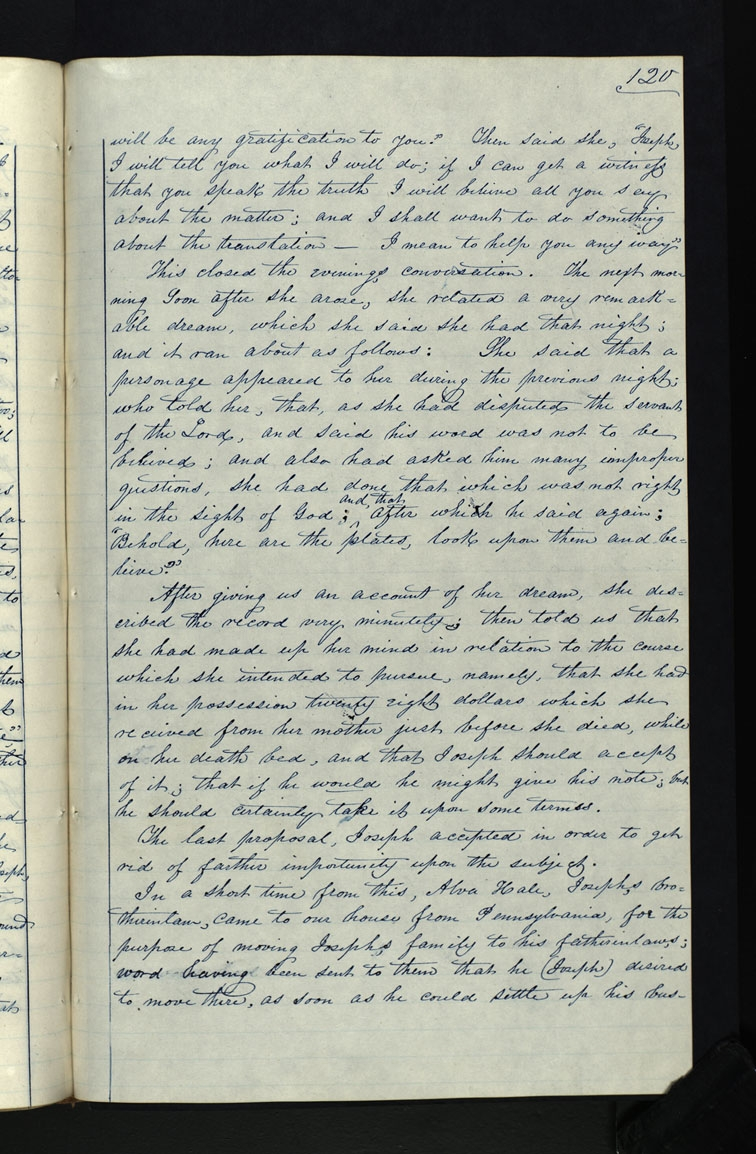 120
will be any gratification to you." Then said she, "Joseph,
I will tell you what I will do; if I can get a witness
that you speak the truth I will believe all you say
about the matter; and I shall want to do something
about the translation — I mean to help you any way"
This closed the evenings conversation. The next mor-
ning soon after she arose, she related a very remark=
able dream, which she said she had that night;
and it ran about as follows: She said that a
personage appeared to her during the previous night;
who told her, that, as she had disputed the servant
of the Lord, and said his word was not to be
believed; and also had asked him many improper
questions, she had done that which was not right
in the sight of God; and that after which he said again;
"Behold, here are the plates, look upon them and be=
leive."
After giving us an account of her dream, she des=
cribed the record very minutely; then told us that
she had made up her mind in relation to the course
which she intended to pursue, namely, that she had
in her possession twenty eight dollars which she
received from her mother just before she died, while
on her death bed, and that Joseph should accept
of it; that if he would he might give his note; but
he should certainly take it upon some terms.
The last proposal, Joseph accepted in order to get
rid of farther importunity upon the subject.
In a short time from this, Alva Hale, Joseph,s bro=
therinlaw, came to our house from Pennsylvania, for the
purpose of moving Joseph,s family to his fatherinlaws;
word having been sent to them that he (Joseph) desired
to move there, as soon as he could settle up his bus-